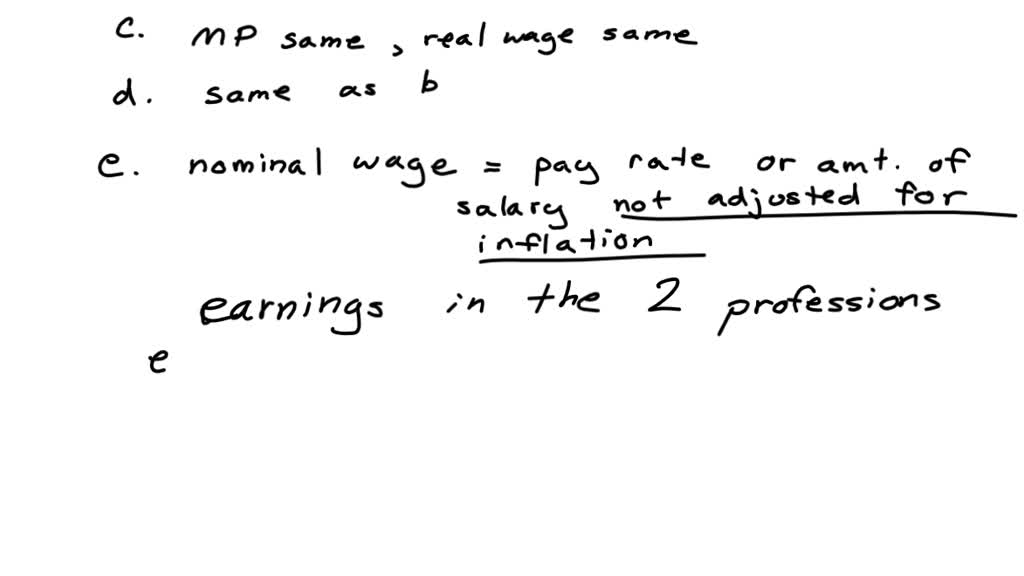 c. MP same, real wage same
d. same as b
e. nominal wage = pay rate or amt. of
salary not adjusted for
inflation
earnings in the 2 professions
e